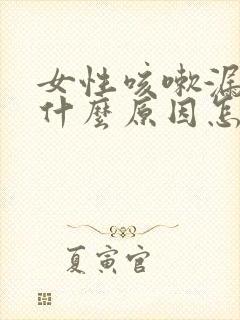 女性咳嗽漏
什麼原因怎
夏寅官